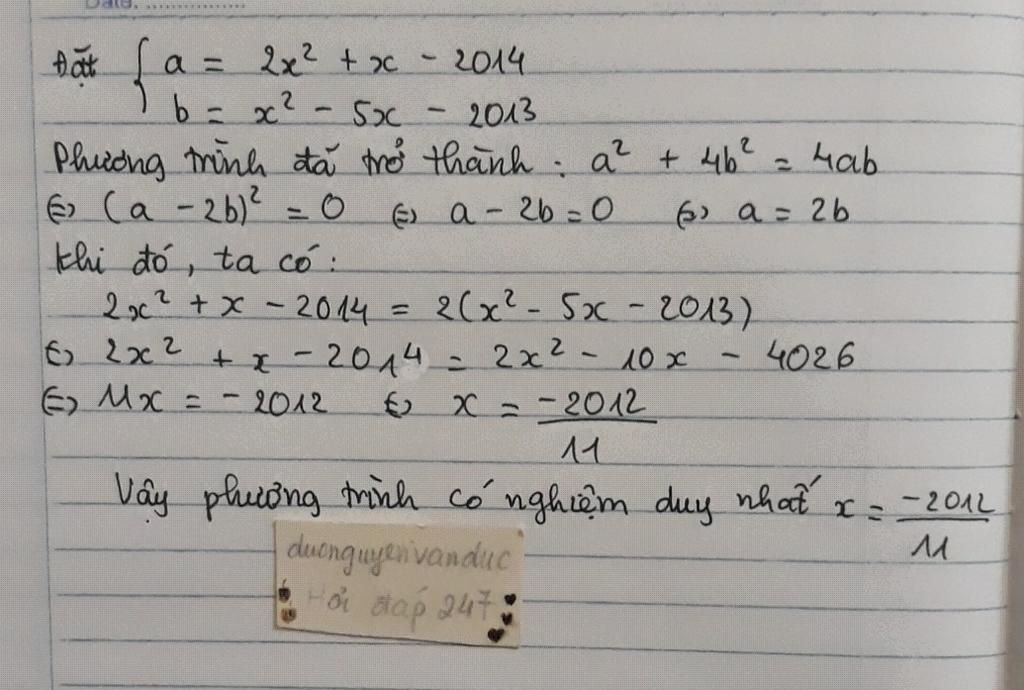 Date. ................
Đặt { a = 2x² + x - 2014
b = x² - 5x - 2013
Phương trình đã trở thành : a² + 4b² = 4ab
⇔ (a - 2b)² = 0 ⇔ a - 2b = 0 ⇔ a = 2b
Khi đó, ta có :
2x² + x - 2014 = 2(x² - 5x - 2013)
⇔ 2x² + x - 2014 = 2x² - 10x - 4026
⇔ 11x = - 2012 ⇔ x = -2012/11
Vậy phương trình có nghiệm duy nhất x = -2012/11
duongnguyenvanduc
Hỏi đáp 247